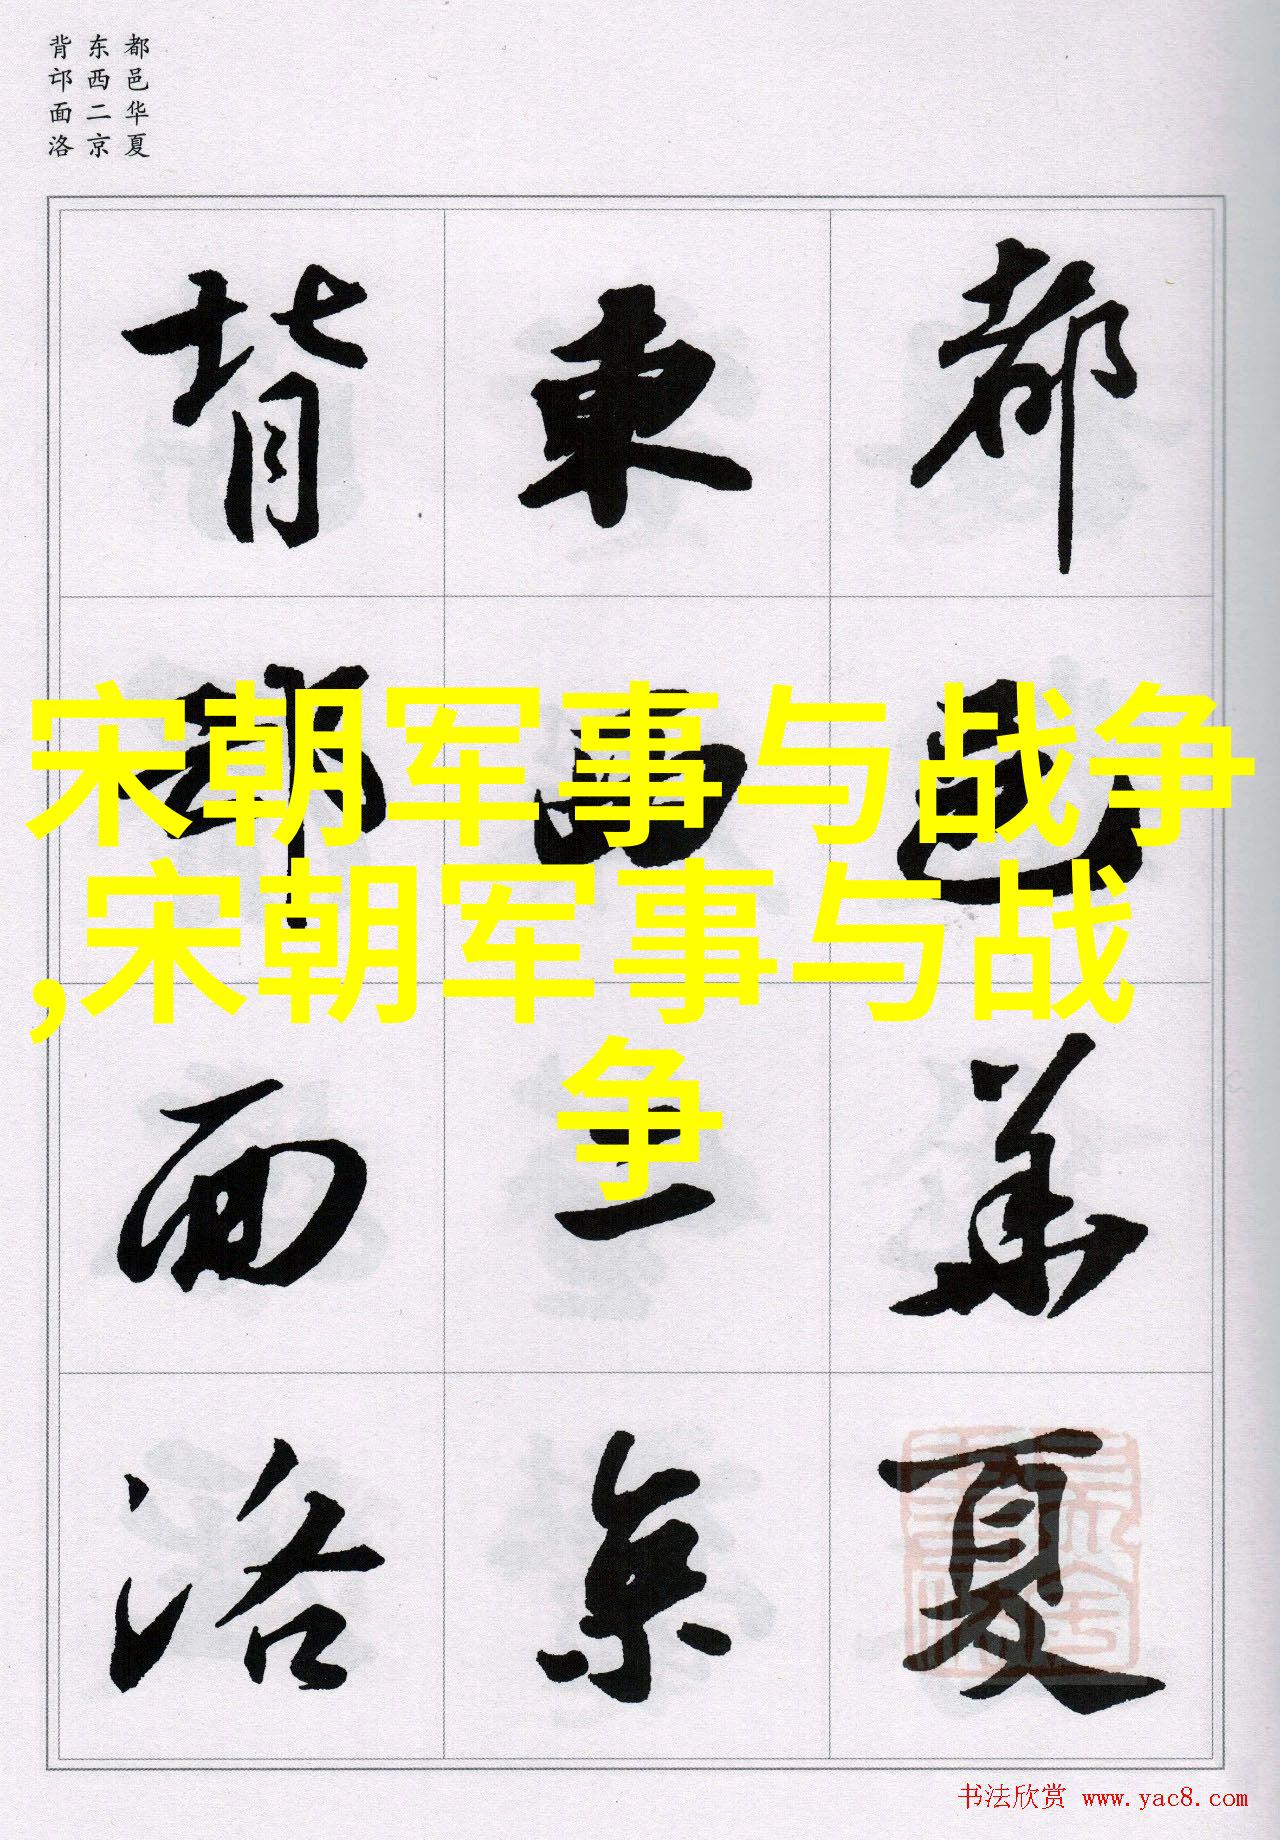 都邑华夏
东西二京
背邙面洛
都邑華夏
東西二京
背邙面洛
宋朝军事与战争
,宋朝军事与战
争
书法欣赏 www.yac8.com